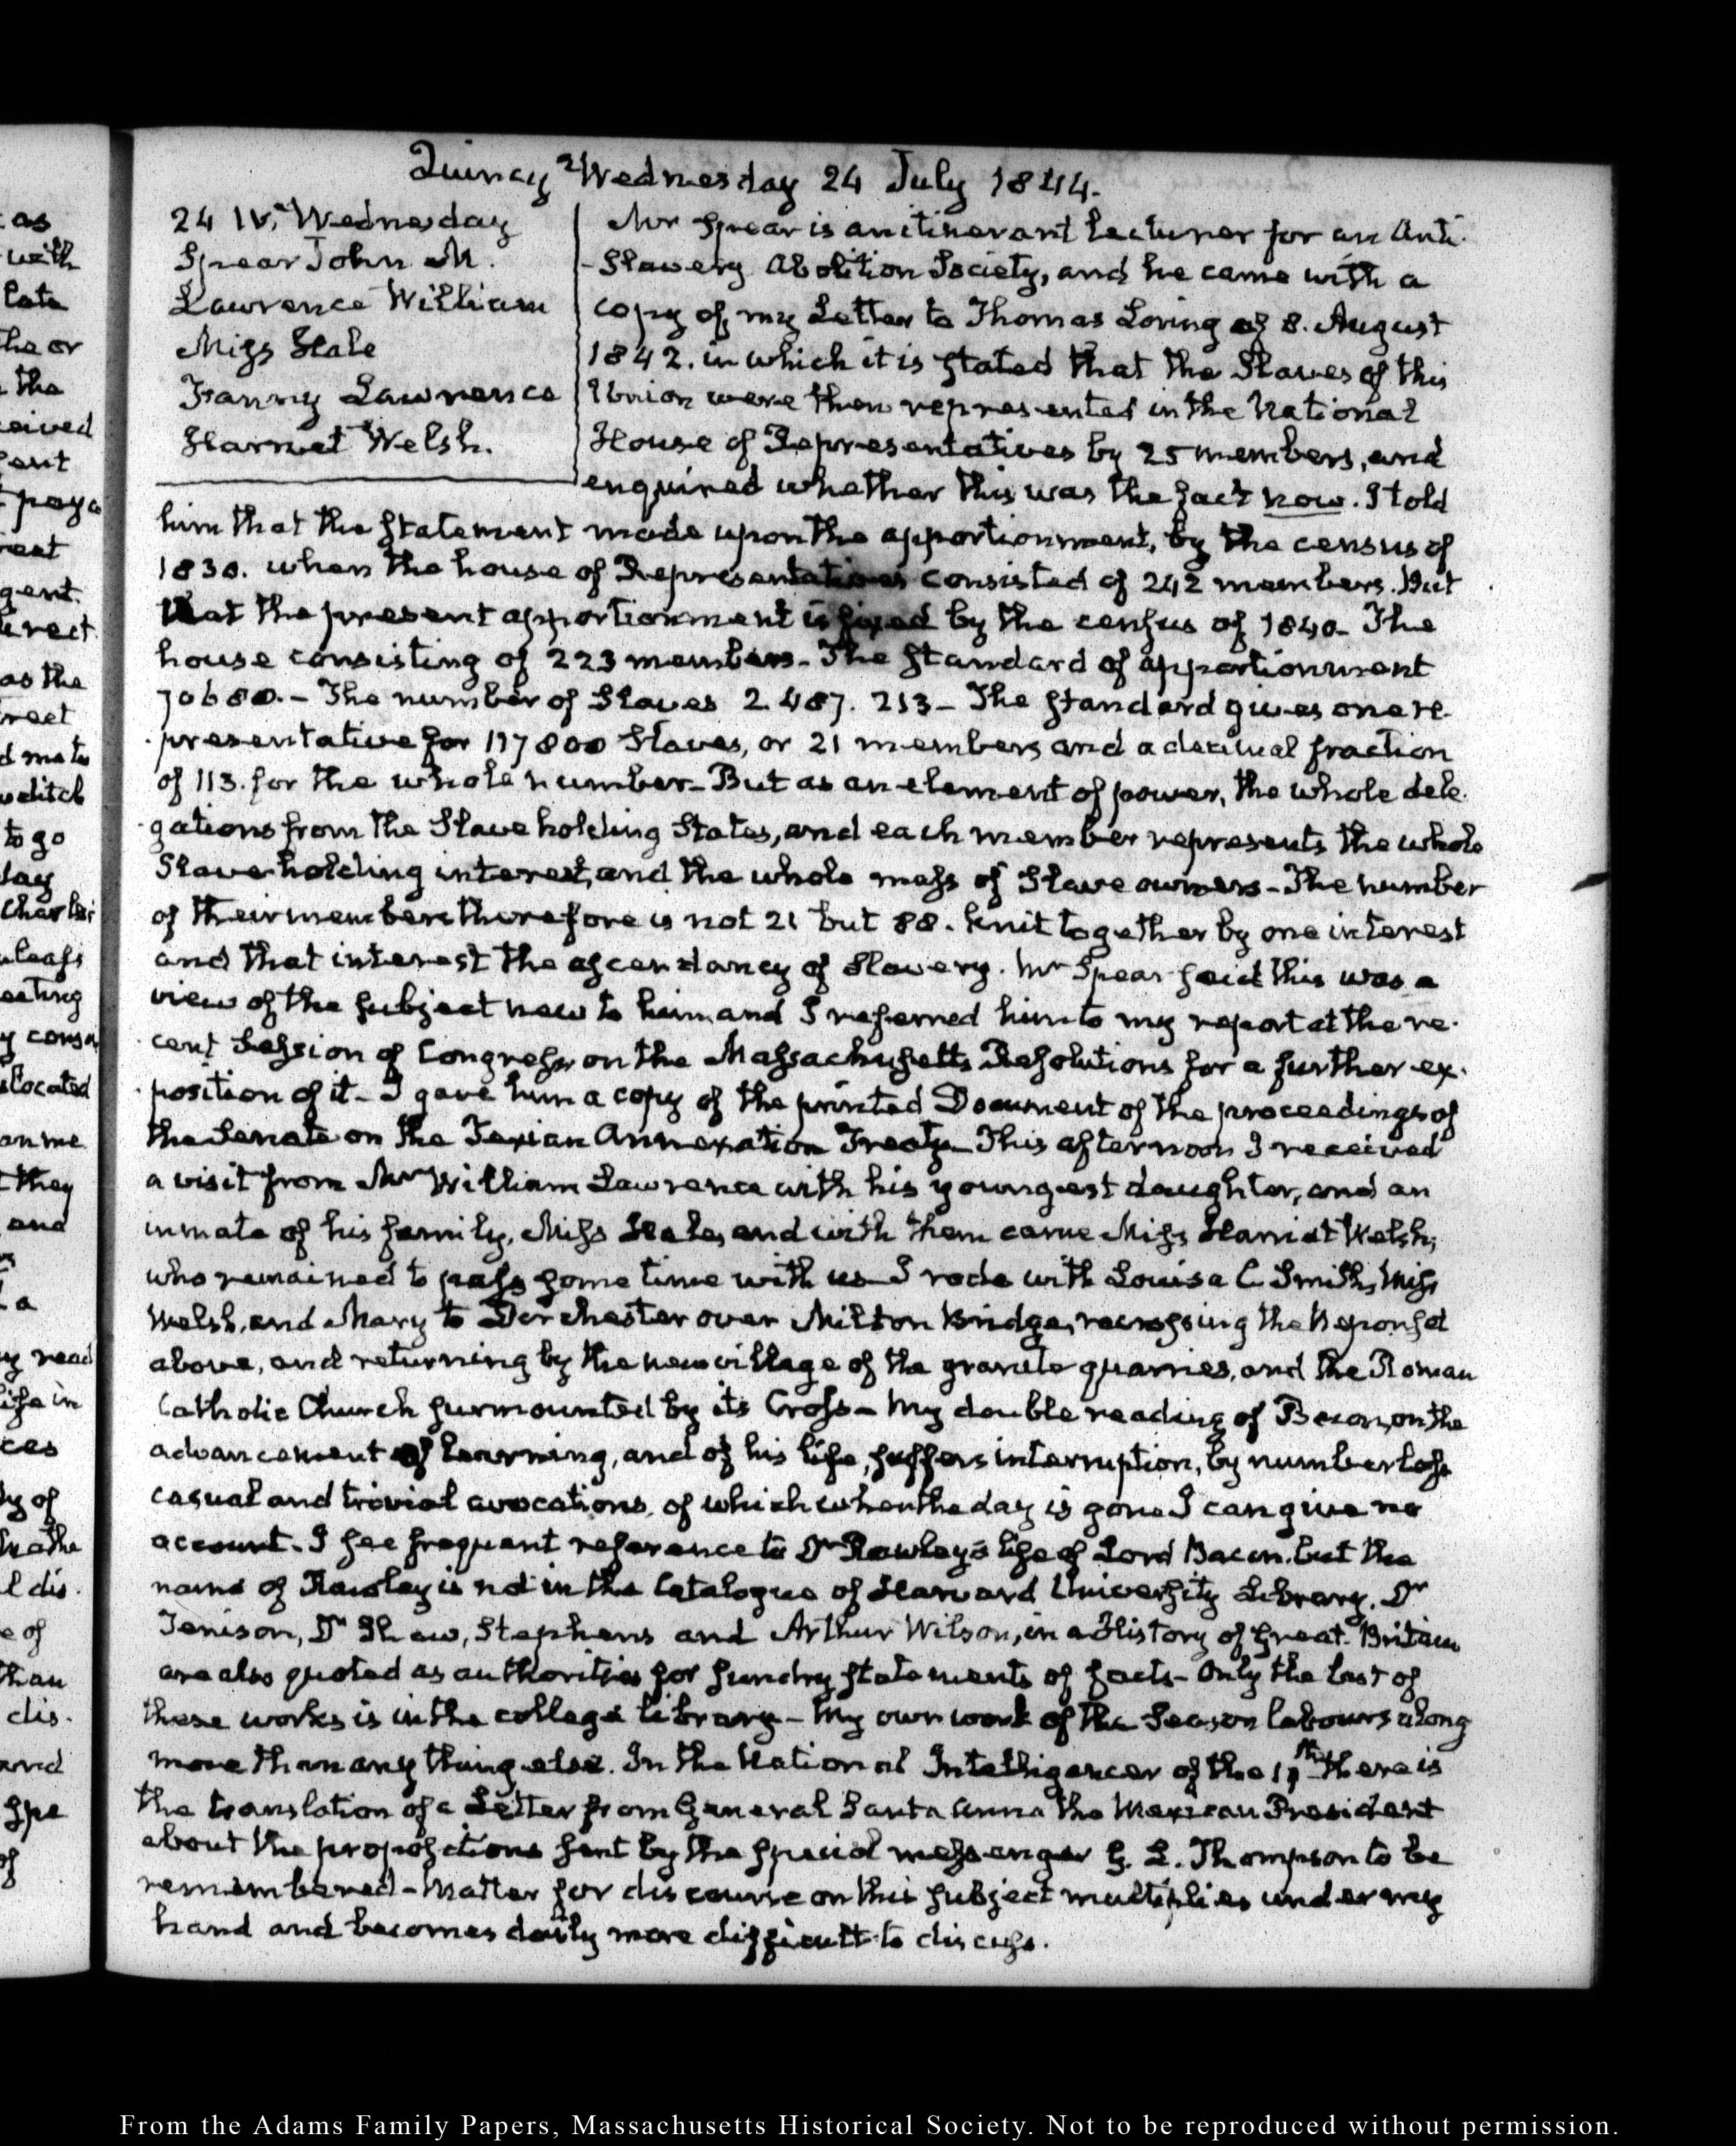 Quincy Wednesday 24 July 1844.
24 IV. Wednesday
Spear John M.
Lawrence William
Miss Hale
Fanny Lawrence
Harriet Welsh.
Mr Spear is an itinerant Lecturer for an Anti-
-Slavery Abolition Society, and he came with a
copy of my Letter to Thomas Loring of 8. August
1842. in which it is stated that the Slaves of this
Union were then represented in the National
House of Representatives by 25 members, and
enquired whether this was the fact now. I told
him that the statement made upon the apportionment, by the census of
1830. when the house of Representatives consisted of 242 members. But
that the present apportionment is fixed by the census of 1840- The
house consisting of 223 members- The standard of apportionment
70680.- The number of Slaves 2.487.213- The standard gives one re-
-presentative for 117800 Slaves, or 21 members and a decimal fraction
of 113. for the whole number- But as an element of power, the whole dele-
-gations from the Slave holding States, and each member represents the whole
Slave holding interest, and the whole mass of Slave owners- The number
of their members therefore is not 21 but 88. knit together by one interest
and that interest the ascendancy of Slavery. Mr Spear said this was a
view of the subject new to him and I referred him to my report at the re-
-cent Session of Congress on the Massachusetts Resolutions for a further ex-
-position of it- I gave him a copy of the printed Document of the proceedings of
the Senate on the Texian Annexation Treaty- This afternoon I received
a visit from Mr William Lawrence with his youngest daughter, and an
inmate of his family, Miss Hale, and with them came Miss Harriet Welsh,
who remained to pass some time with us- I rode with Louisa C. Smith, Miss
Welsh, and Mary to Dorchester over Milton Bridge, recrossing the Neponset
above, and returning by the new village of the granite quarries, and the Roman
Catholic Church surmounted by its Cross- My double reading of Bacon, on the
advancement of learning, and of his life, suffers interruption, by numberless
casual and trivial avocations, of which when the day is gone I can give no
account. I see frequent reference to Dr Rawley's life of Lord Bacon, but the
name of Rawley is not in the Catalogue of Harvard University Library. Dr
Tenison, Dr Shaw, Stephens and Arthur Wilson, in a History of Great-Britain
are also quoted as authorities for sundry statements of facts- Only the last of
these works is in the college library- My own work of the Season labours along
more than any thing else. In the National Intelligencer of the there is
the translation of a Letter from General Santa Anna the Mexican President
about the propositions sent by the special messenger G. L. Thompson to be
remembered- Matter for discourse on this subject multiplies under my
hand and becomes daily more difficult to discuss.
as
with
late
the or
the
ceived
sent
rect
gent.
as the
rect
to go
day
Charles
eating
located
an me
they
and
a
read
life in
ces
by of
l dis.
e of
than
dis.
and
spe
of
From the Adams Family Papers, Massachusetts Historical Society. Not to be reproduced without permission.